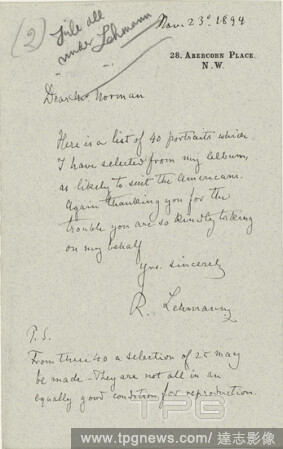 (2) File all
under Lehmann
Nov. 23d. 1894
28. ABERCORN PLACE.
N.W.
Dear Mr Norman
Here is a list of 40 portraits which
I have selected from my album,
as likely to suit the Americans.
Again thanking you for the
trouble you are so kindly taking
on my behalf
Yrs. sincerely
R. Lehmann
P.S.
From these 40 a selection of 25 may
be made – They are not all in an
equally good condition for reproduction.
TPG
www.tpgnews.com/達志影像